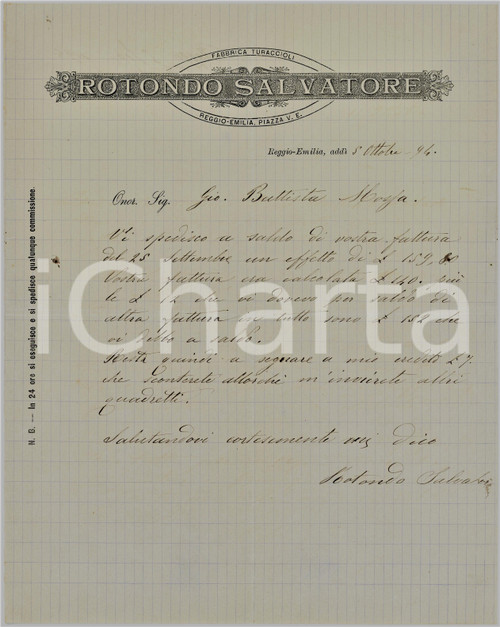 FABBRICA TURACCIOLI
ROTONDO SALVATORE
REGGIO-EMILIA, PIAZZA V. E.
Reggio-Emilia, addì 5 Ottobre 94.
Onor. Sig. Gio. Battista
Vi spedisco a saldo di vostra fattura
del 25 Settembre un effetto di £ 159,
Vostra fattura era calcolata £ 140. più
le £ 12 che vi dovevo per saldo di
altra fattura in tutto sono £ 152 che
vi a saldo.
Resta quindi a segnare a mio credito £ 7.
che sconterete allorchè m'invierete altri
quadretti.
Salutandovi cortesemente mi dico
Rotondo Salvatore
N. B. -- In 24 ore si eseguisce e si spedisce qualunque commissione.
iCharta